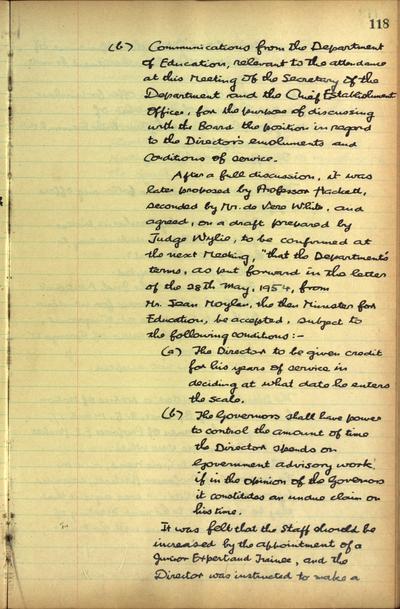 118
(b) Communications from the Department
of Education, relevant to the attendance
at this Meeting of the Secretary of the
Department and the Chief Establishment
Officer, for the purpose of discussing
with the Board the position in regard
to the Director's emoluments and
conditions of service.
After a full discussion, it was
later proposed by Professor Hackett,
seconded by Mr. de Vere White, and
agreed, on a draft prepared by
Judge Wylie, to be confirmed at
the next Meeting, "that the Department's
terms, as put forward in the letter
of the 28th May, 1954, from
Mr. Sean Moylan, the then Minister for
Education, be accepted, subject to
the following conditions:-
(a) The Director to be given credit
for his years of service in
deciding at what date he enters
the scale.
(b) The Governors shall have power
to control the amount of time
the Director spends on
Government advisory work,
if in the opinion of the Governors
it constitutes an undue claim on
his time.
It was felt that the Staff should be
increased by the appointment of a
Junior Expert and Trainee, and the
Director was instructed to make a